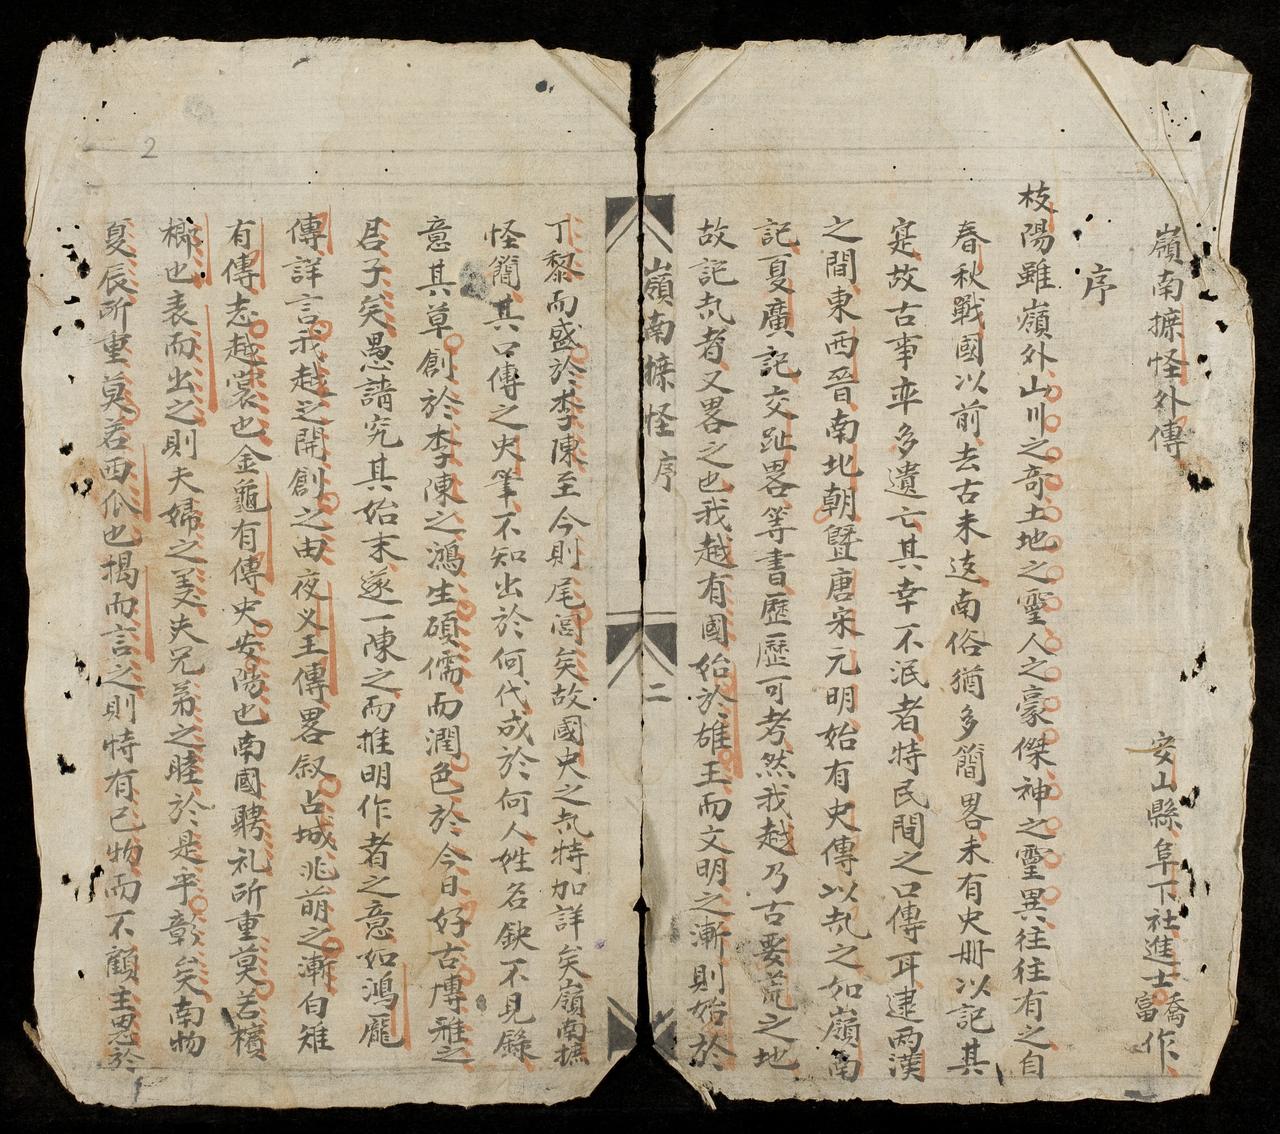 嶺南摭怪外傳
安山縣阜下社進士喬富作
序
枝陽雖嶺外山川之奇土地之靈人之豪傑神之靈異往往有之自
春秋戰國以前去古未遠南俗猶多簡畧未有史册以記其
寔故古事率多遺亡其幸不泯者特民間之口傳耳逮兩漢
之間東西晉南北朝暨唐宋元明始有史傳以紀之如嶺南
記夏廣記交趾畧等書歷歷可考然我越乃古要荒之地
故記紀者又畧之也我越有國始於雄王而文明之漸則始於
嶺南摭怪序
二
丁黎而盛於李陳至今則尾閭矣故國史之紀特加詳矣嶺南摭
怪簡其口傳之史筆不知出於何代成於何人姓名缺不見錄
意其草創於李陳之鴻生碩儒而潤色於今日好古博雅之
君子矣愚請究其始末遂一陳之而推明作者之意如鴻龐
傳詳言我越之開創之由夜义王傳畧叙占城兆萌之漸白雉
有傳志越裳也金龜有傳史安陽也南國聘礼所重莫若檳
榔也表而出之則夫婦之義夫兄弟之睦於是乎彰矣南物
夏辰所重莫若西瓜也揭而言之則特有已物而不顧主恩於
2